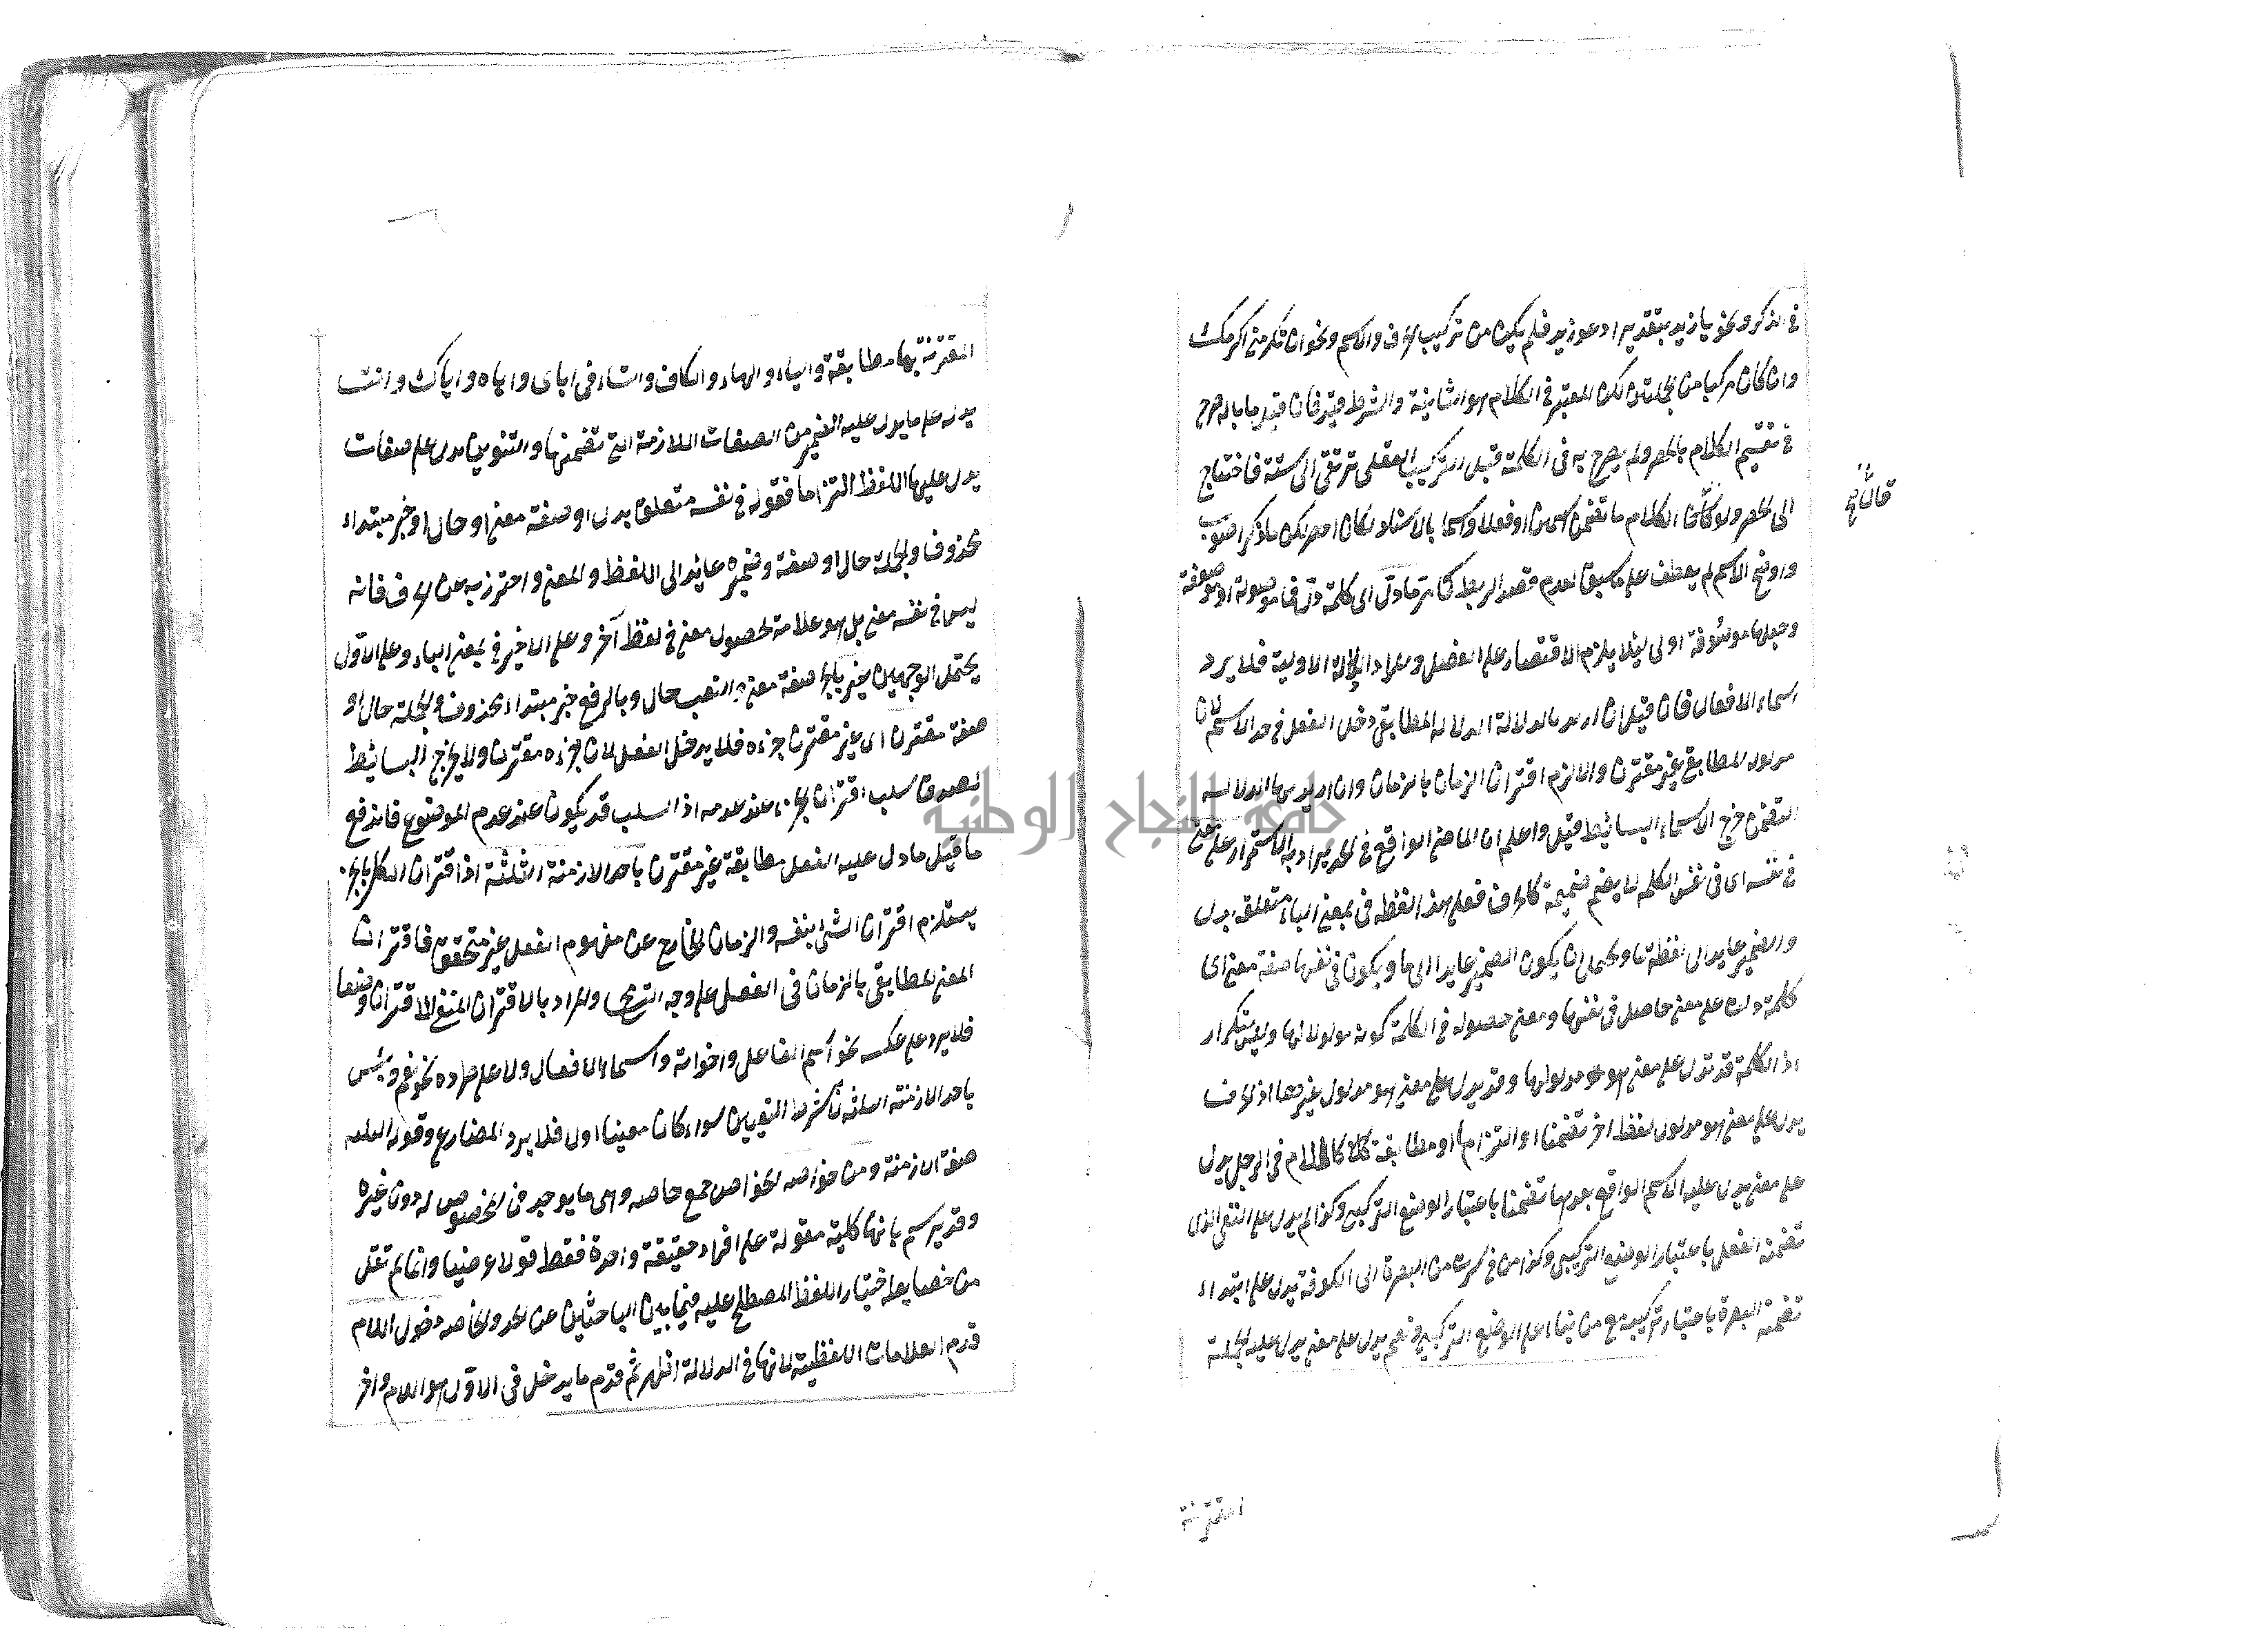 في الذكر ونحو يا زيد بتقدير ادعو زيد فلم يكن من تركيب الحرف والاسم ونحو ان تكرمني اكرمك
وان كان مركبا من الجملتين لكن المعتبر في الكلام هو الثانية والشرط قيد فان قيل ما باله صرح
في تقسيم الكلام بالحصر ولم يصرح به في الكلمة قيل التركيب العقلي ترتقي الى ستة فاحتاج
الى الحصر ولو قال الكلام ما تضمن اسمين او فعلا واسما بالاسناد لكان اخصر لكن ما ذكر اصوب
قال
وارضح الاسم لم يعطف على ما سبق لعدم قصد الربط كما مر ما دل اي كلمة دل فما موصولة او موصوفة
وجعلها موصوفة اولى لئلا يلزم الاقتصار على الفصل والمراد الدلالة الاولية فلا يرد
اسماء الافعال فان قيل ان اريد بالدلالة الدلالة المطابقي دخل الفعل في حد الاسم لان
مدلوله المطابقي غير مقترن والا لزم اقتران الزمان بالزمان وان اريد بها الدلالة
التضمن خرج الاسماء البسائط قيل واعلم ان الماضي الواقع في الحد يراد به الاستمرار على معنى
في نفسه اي في نفس الكلمة لا يضم ضميمة كالحرف فعلى هذا لفظه في بمعنى الباء متعلقة بدل
والضمير عايد الى لفظة ما ويحتمل ان يكون الضمير عايدا الى ما ويكون في نفسها صفة معنى اي
كلمة دلت على معنى حاصل في نفسها ومعنى حصوله في الكلمة كونه مدلولا لها وليس تكرار
اذ الكلمة قد تدل على معنى هو مدلولها وقد يدل على معنى هو مدلول غيرها اذ الحرف
يدل على معنى هو مدلول لفظ اخر تضمنا او التزاما او مطابقة كاللام في الرجل يدل
على معنى يدل عليه الاسم الواقع بعدها تضمنا باعتبار الوضع التركيبي وكذا لم يدل على النفي الذي
تضمنه الفعل باعتبار الوضع التركيبي وكذا من في سرت من البصرة الى الكوفة يدل على ابتداء
تضمنه البصرة باعتبار تركيبه مع من بناء على الوضع التركيبي ونعم يدل على معنى يدل عليه الجملة
المقترنة
المقترنة بها مطابقة والياء والهاء والكاف والتاء في اياي واياه واياك وانت
يدل على ما يدل عليه الضمير من الصفات اللازمة التي تضمنها والتنوين يدل على صفات
يدل عليها اللفظ التزاما فقوله في نفسه متعلق بدل او صفة معنى او حال او خبر مبتداء
محذوف والجملة حال او صفة وضميره عايد الى اللفظ والمعنى واحترز به عن الحرف فانه
ليس في نفسه معنى بل هو علامة لحصول معنى في لفظ آخر وعلى الاخير في بمعنى الباء وعلى الاول
يحتمل الوجهين غير بالجر صفة معنى وبالنصب حال وبالرفع خبر مبتداء محذوف والجملة حال او
صفة مقترن اي غير مقترن جزءه فلا يدخل الفعل لان جزءه مقترن ولا يخرج البسائط
لصدق سلب اقتران الجزء عند عدمه اذ السلب قد يكون عند عدم الموضوع فاندفع
ما قيل ما دل عليه الفعل مطابقة غير مقترن باحد الازمنة الثلثة اذ اقتران الكل بالجزء
يستلزم اقتران الشئ بنفسه والزمان الخارج عن مفهوم الفعل غير متحقق فاقتران
المعنى المطابقي بالزمان في الفعل على وجه التسمح والمراد بالاقتران المنفي الاقتران وضعا
فلا يرد على عكسه نحو اسم الفاعل واخواته واسماء الافعال ولا على طرده نحو نعم وبئس
باحد الازمنة الثلثة بشرط التعيين سواء كان معينا اولا فلا يرد المضارع وقوله الثلثة
صفة الازمنة ومن خواصه الخواص جمع خاصة وهي ما يوجد في المخصوص له دون غيره
وقد يرسم بانها كلية مقولة على افراد حقيقة واحدة فقط قولا عرضيا وانما لم تقل
من خصايصه اختيار اللفظ المصطلح عليه فيما بين الباحثين عن الحد والخاصة دخول اللام
قدم العلامات اللفظية لانها في الدلالة اظهر ثم قدم ما يدخل في الاول هو اللام واخر
جامعة النجاح الوطنية